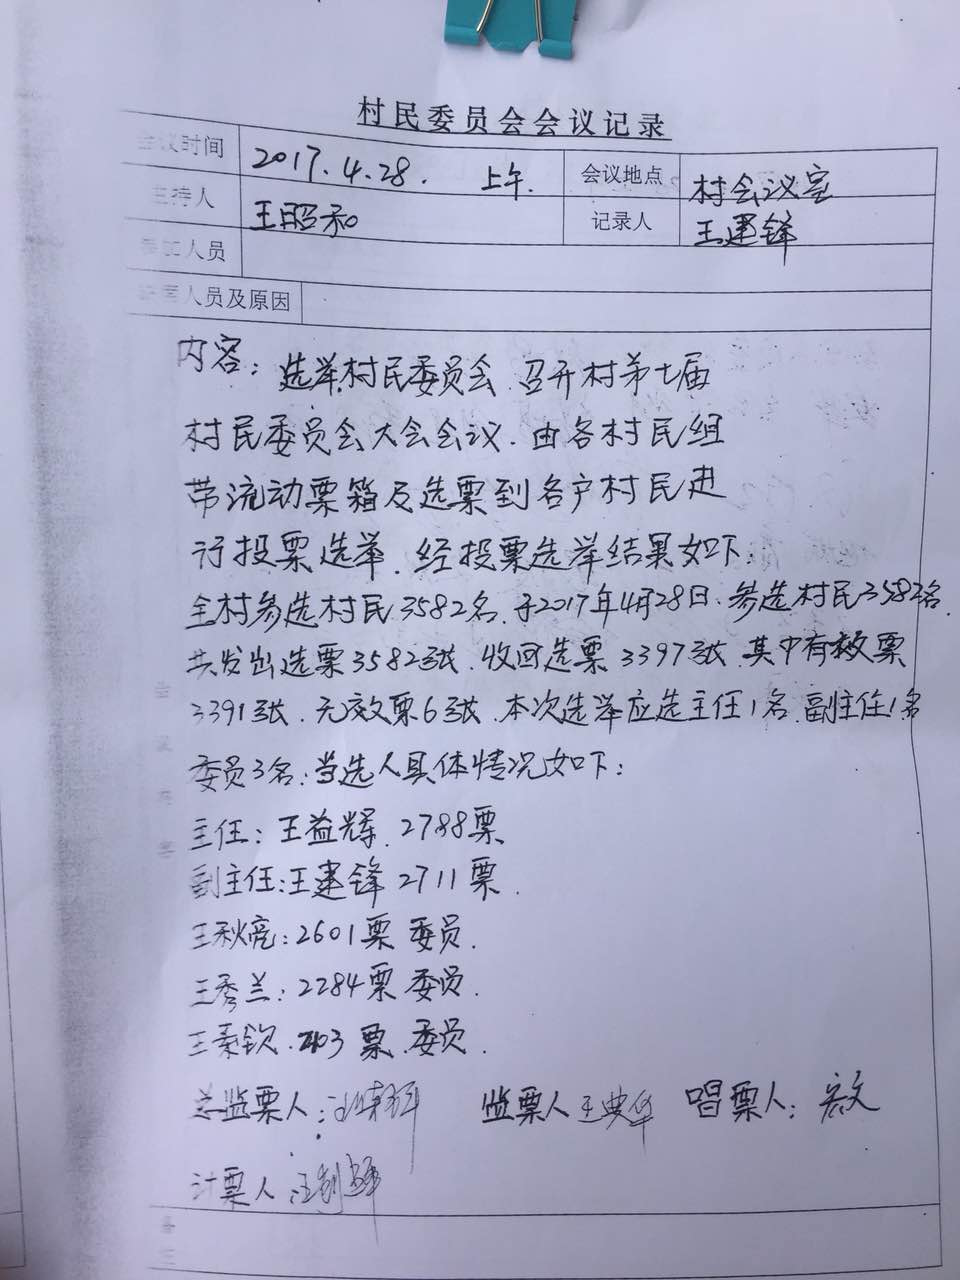 村民委员会会议记录
会议时间 2017.4.28. 上午. 会议地点 村会议室
主持人 王昭和 记录人 王建锋
参加人员
缺席人员及原因
内容：选举村民委员会.召开村第七届
村民委员会大会会议.由各村民组
带流动票箱及选票到各户村民进
行投票选举.经投票选举结果如下：
全村参选村民3582名.于2017年4月28日.参选村民3582名.
共发出选票3582张.收回选票3397张.其中有效票
3391张.无效票6张.本次选举应选主任1名.副主任1名
委员3名.当选人具体情况如下：
主任：王益辉.2788票
副主任：王建锋2711票.
王秋亮：2601票 委员.
王秀兰：2284票 委员.
王素钦. 票.委员.
总监票人： 监票人 唱票人：
计票人
备
注